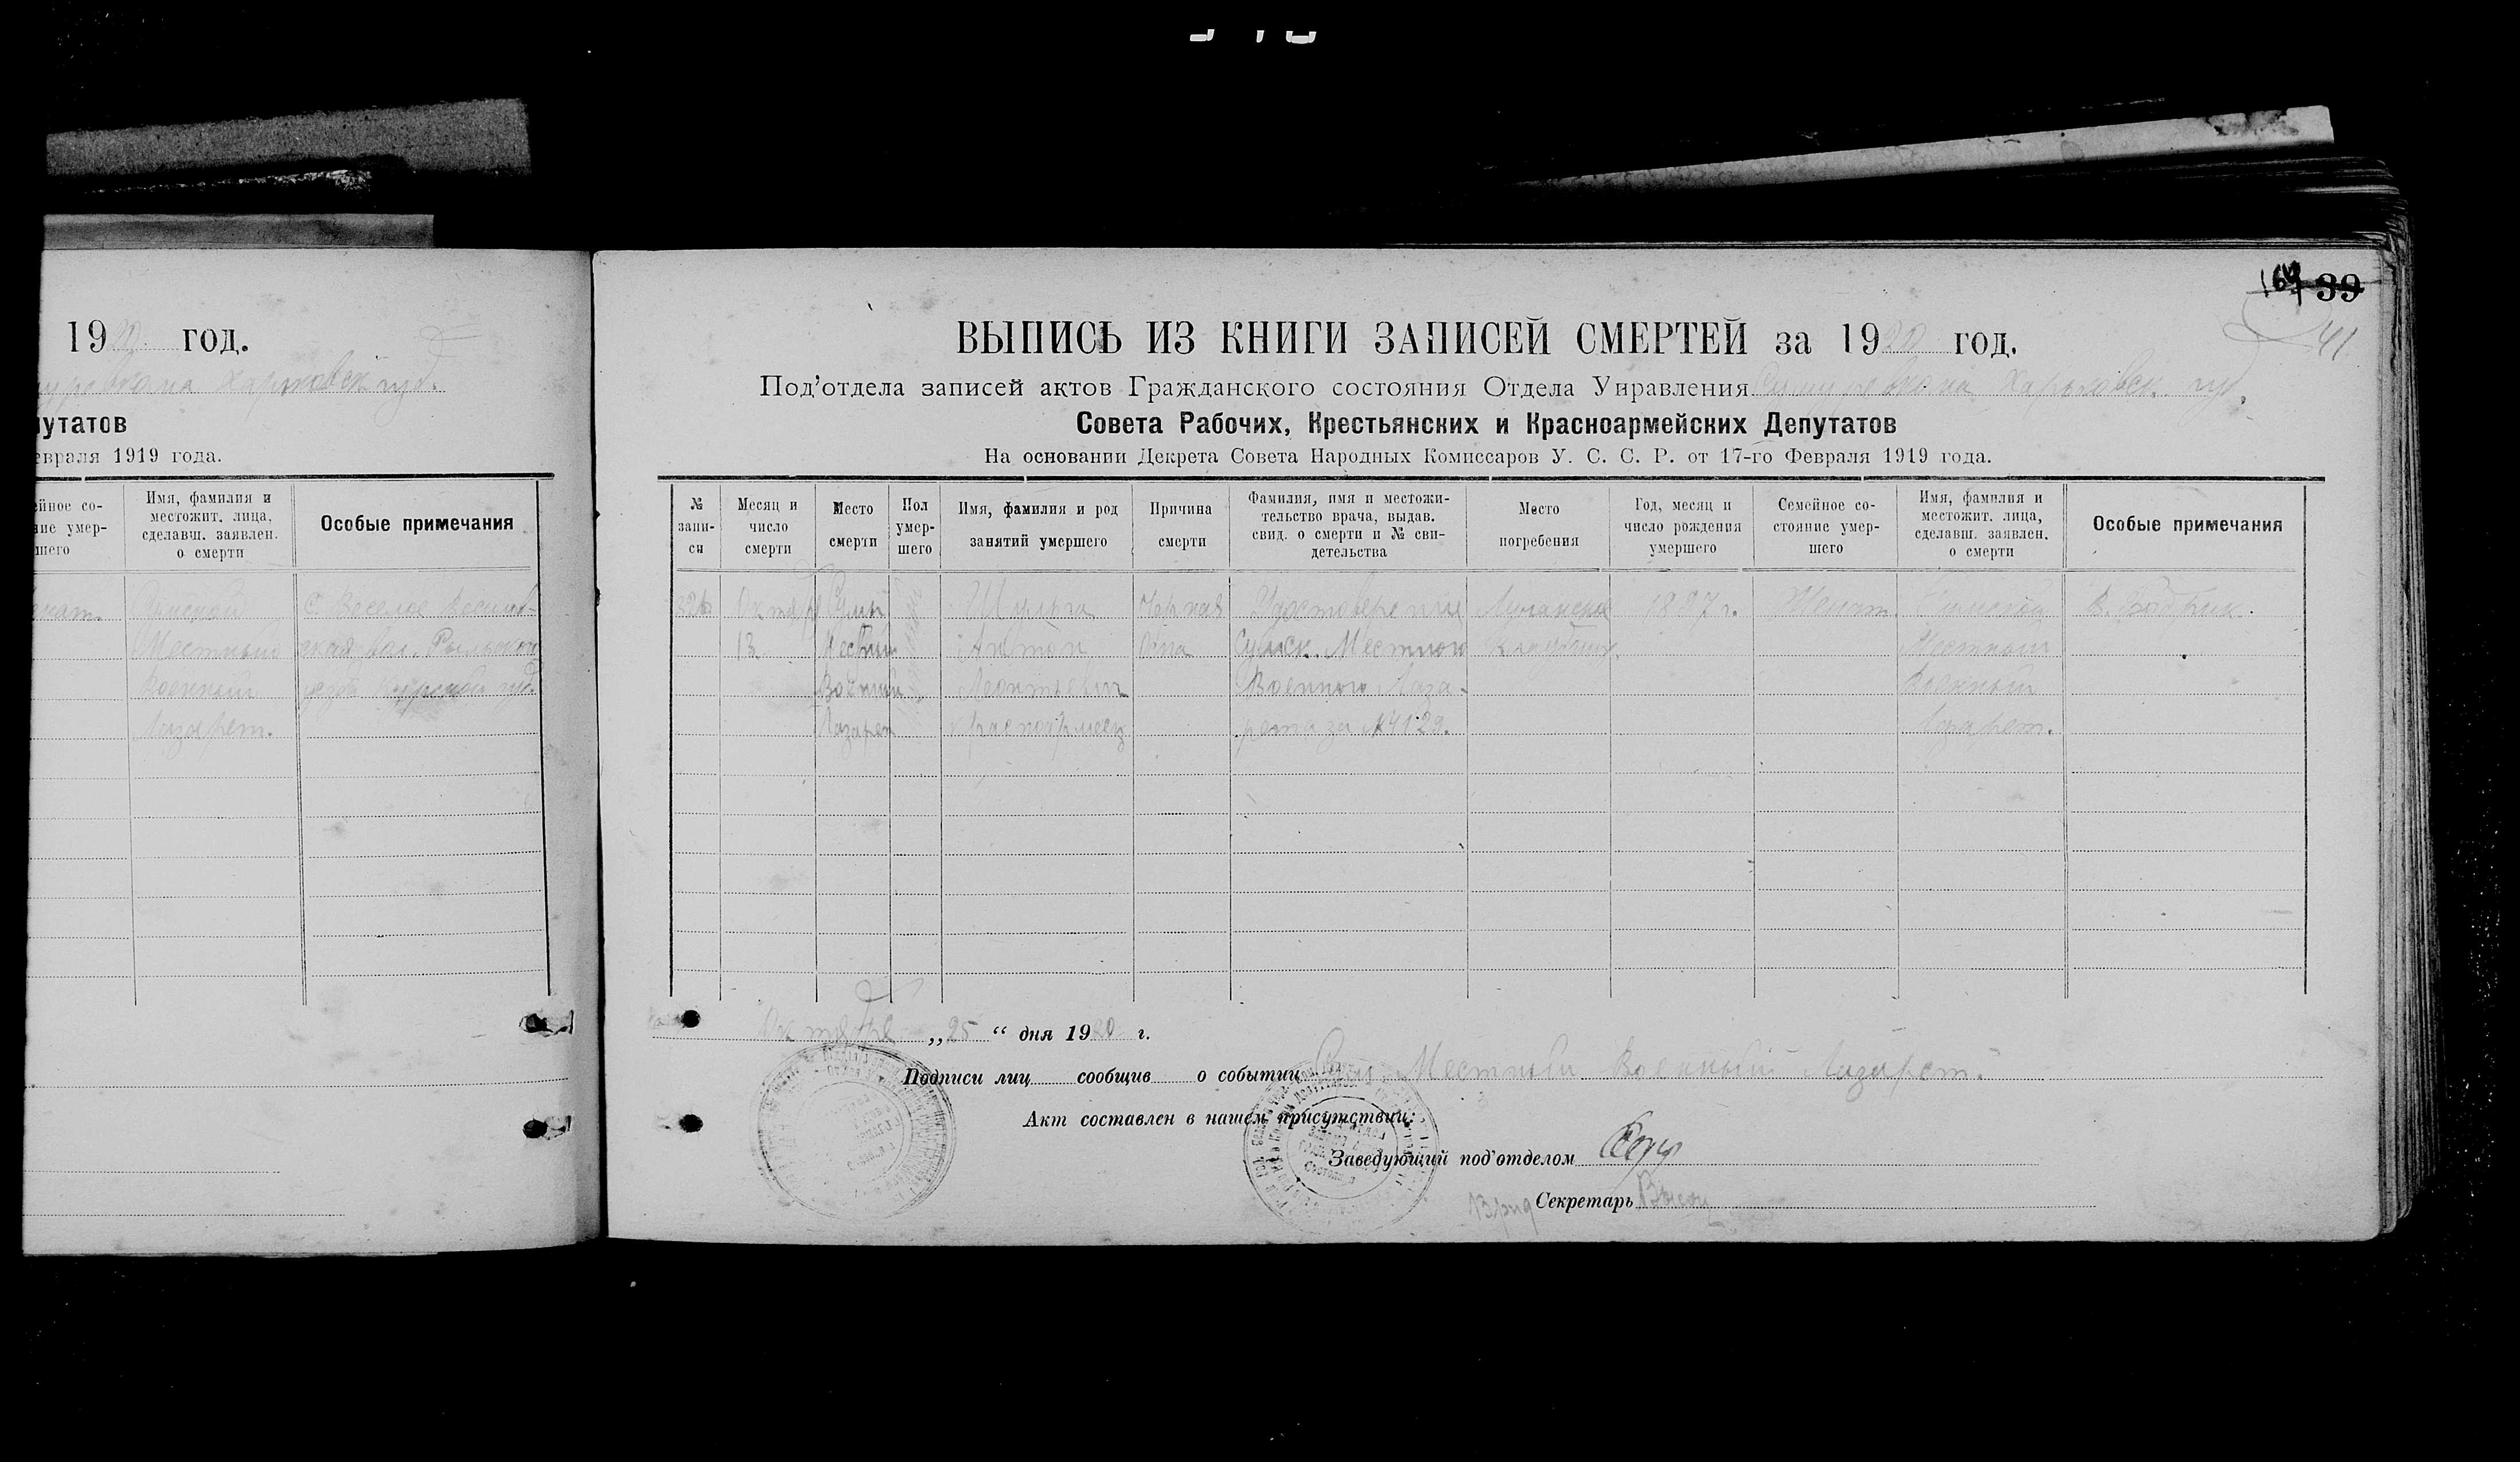 1920 год.
Харьковск губ.
путатов
евраля 1919 года.
ейное со-
ние умер-
шего
Имя, фамилия и
местожит. лица,
сделавш. заявлен.
о смерти
Особые примечания
Сумской
Местный
Военный
Лазарет.
с. Веселое Веселов-
ская вол. Рыльского
уезда Курской губ.
39
164
41
ВЫПИСЬ ИЗ КНИГИ ЗАПИСЕЙ СМЕРТЕЙ за 1920 год.
Под'отдела записей актов Гражданского состояния Отдела Управления Сумуревкома Харьковск. губ.
Совета Рабочих, Крестьянских и Красноармейских Депутатов
На основании Декрета Совета Народных Комиссаров У. С. С. Р. от 17-го Февраля 1919 года.
№
запи-
си
Месяц и
число
смерти
Место
смерти
Пол
умер-
шего
Имя, фамилия и род
занятий умершего
Причина
смерти
Фамилия, имя и местожи-
тельство врача, выдав.
свид. о смерти и № сви-
детельства
Место
погребения
Год, месяц и
число рождения
умершего
Семейное со-
стояние умер-
шего
Имя, фамилия и
местожит. лица,
сделавш. заявлен.
о смерти
Особые примечания
326
Октябр
13
Сумы
Местный
Военный
Лазарет
Шульга
Антон
Леонтьевич
красноармеец
Черная
Оспа
Удостоверение
Сумск. Местного
Военного Лаза-
рета за №4129.
Луганское
Кладбище.
1887 г.
Женат.
Сумской
Местный
Военный
Лазарет.
В. Бобрик.
Октября „25“ дня 1920 г.
Подписи лиц сообщив о событии Сум. Местный Военный Лазарет.
Акт составлен в нашем присутствии:
Заведующий под'отделом
Врид Секретарь